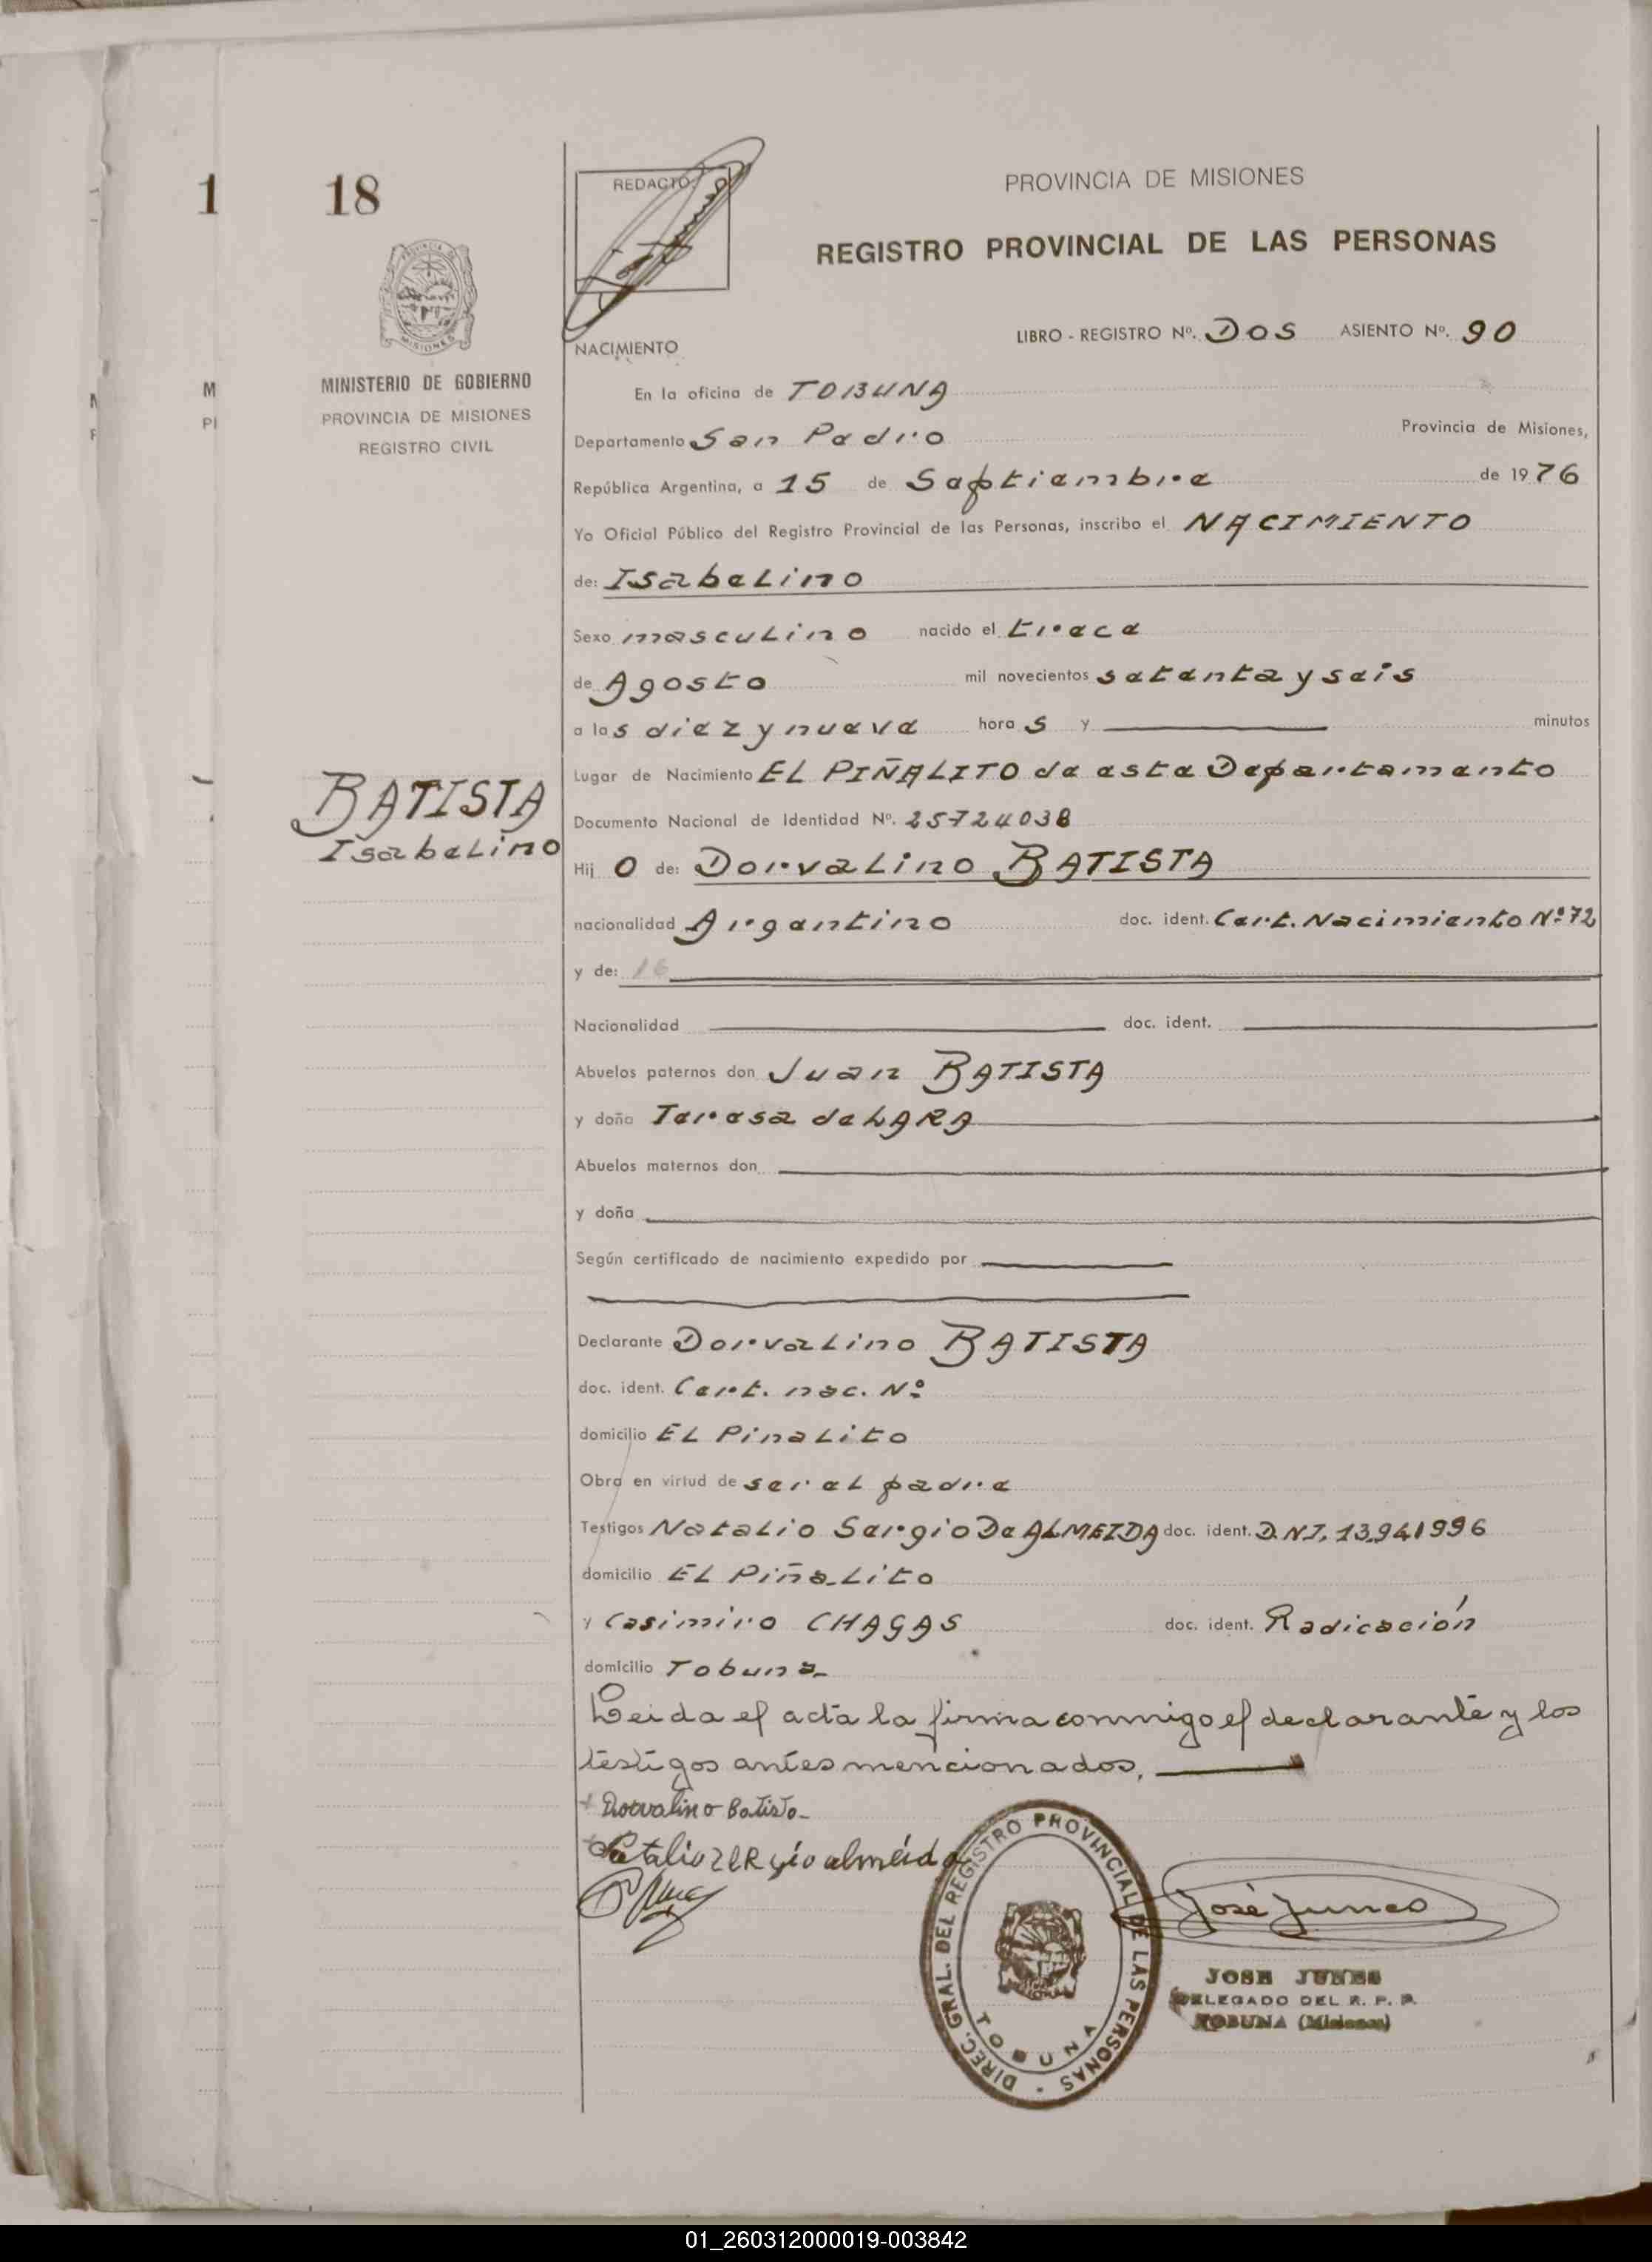 1
18
REDACTÓ:
PROVINCIA DE MISIONES
REGISTRO PROVINCIAL DE LAS PERSONAS
LIBRO - REGISTRO Nº. DOS ASIENTO Nº. 90
NACIMIENTO
M
PI
MINISTERIO DE GOBIERNO
PROVINCIA DE MISIONES
REGISTRO CIVIL
En la oficina de TOBUNA
Departamento San Pedro Provincia de Misiones,
República Argentina, a 15 de Septiembre de 1976
Yo Oficial Público del Registro Provincial de las Personas, inscribo el NACIMIENTO
de: Isabelino
Sexo masculino nacido el trece
de Agosto mil novecientos setenta y seis
a las diez y nueve horas y minutos
Lugar de Nacimiento EL PIÑALITO de este Departamento
BATISTA
Isabelino
Documento Nacional de Identidad Nº. 25724038
Hijo de: Dorvalino BATISTA
nacionalidad Argentino doc. ident. Cert. Nacimiento Nº 72
y de: 16
Nacionalidad doc. ident.
Abuelos paternos don Juan BATISTA
y doña Teresa de LARA
Abuelos maternos don
y doña
Según certificado de nacimiento expedido por
Declarante Dorvalino BATISTA
doc. ident. Cert. nac. Nº
domicilio EL Pinalito
Obra en virtud de ser el padre
Testigos Natalio Sergio De ALMEIDA doc. ident. D.N.I. 13.941996
domicilio EL Piñalito
y Casimiro CHAGAS doc. ident. Radicación
domicilio Tobuna
Leida el acta la firma conmigo el declarante y los
testigos antes mencionados,
Dorvalino Batista
Natalio zeRgio almeida
José Junes
DIREC. GRAL. DEL REGISTRO PROVINCIAL DE LAS PERSONAS -
TOBUNA
JOSE JUNES
DELEGADO DEL R. P. P.
TOBUNA (Misiones)
01_260312000019-003842